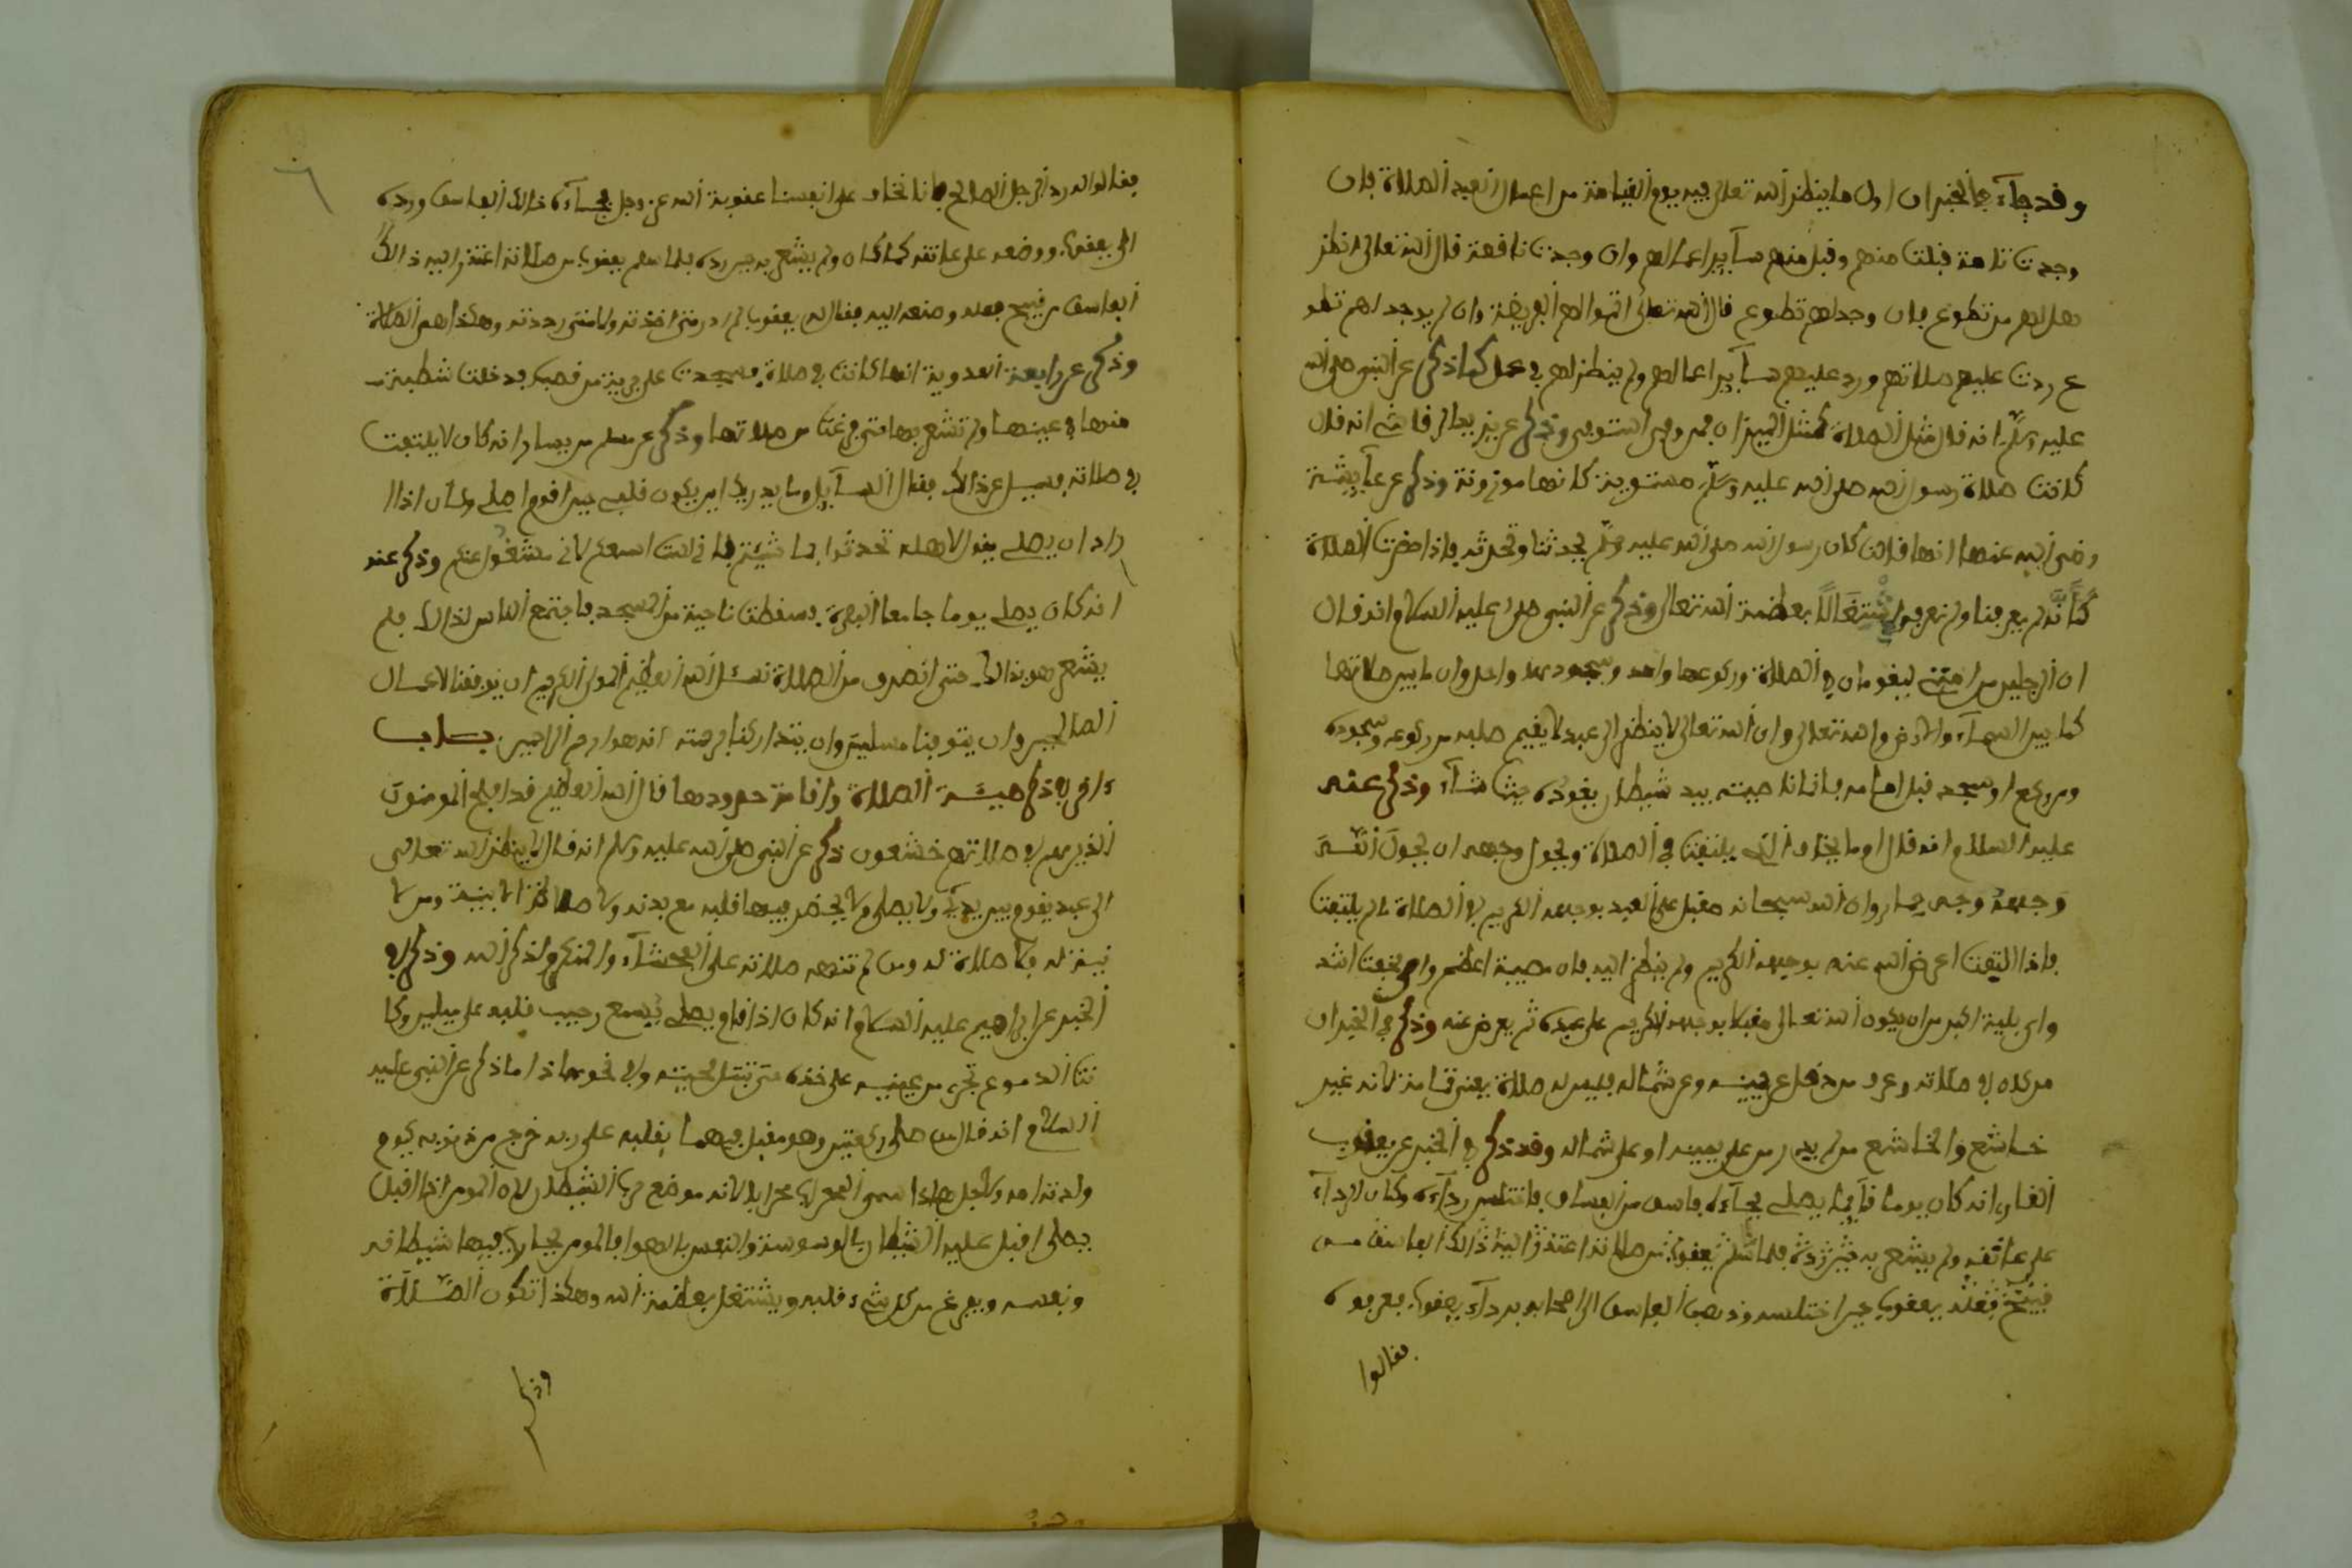 وقد جآء في الخبر ان اول ما ينظر الله تعالى فيه يوم القيامة من اعمال العبد الصلاة فان
وجدت تامة قبلت منهم وقبل منهم سآير اعمالهم وان وجدت ناقصة قال الله تعالى انظر
هل لهم من تطوع فان وجد لهم تطوع قال الله تعالى اتموا لهم الفريضة وان لم يوجد لهم تطو
ع ردت عليهم صلاتهم ورد عليهم سآير اعمالهم ولم ينظر لهم في عمل كما ذكر عن النبي صلى الله
عليه وسلم انه قال مثل الصلاة كمثل الميزان فمن وفى استوفى وذكر عن يزيد الرقاشي انه قال
كانت صلاة رسول الله صلى الله عليه وسلم مستوية كانها موزونة وذكر عن عآيشة
رضي الله عنها انها قالت كان رسول الله صلى الله عليه وسلم يحدثنا ونحدثه فاذا حضرت الصلاة
كانه لم يعرفنا ولم نعرفه اشتغالا بعظمة الله تعالى وذكر عن النبي صلى عليه السلام انه قال
ان الرجلين من امتي ليقومان في الصلاة وركوعهما واحد وسجودهما واحد وان ما بين صلاتهما
كما بين السمآء والارض والله تعالى وان الله تعالى لا ينظر الى عبد لا يقيم صلبه من ركوعه وسجوده
ومن ركع او سجد قبل امامه فانما ناصيته بيد شيطان يقوده حيث شآء وذكر عنه
عليه السلام انه قال اوما يخاف الذي يلتفت في الصلاة ويحول وجهه ان يحول الله
وجهه وجه حمار وان الله سبحانه مقبل على العبد بوجهه الكريم في الصلاة ما لم يلتفت
فاذا التفت اعرض الله عنه بوجهه الكريم ولم ينظر اليه فاي مصيبة اعظم واي مقت اشد
واي بلية اكبر من ان يكون الله تعالى مقبلا بوجهه الكريم على عبده ثم يعرض عنه وذكر في الخبر ان
من كان في صلاته وعرف من دخل عن يمينه وعن شماله فليس له صلاة يعني تامة لانه غير
خاشع والخاشع من لم يدر من على يمينه او على شماله وقد ذكر في الخبر عن يعقوب
القاري انه كان يوما قآيما يصلي فجآءه فاسق من الفساق فاختلس ردآءه وكان لردآء
على عاتقه ولم يشعر به حين رده فلما سلم يعقوب من صلاته اعتذر اليه ذالك الفاسق من
قبيح فعله يعقوب حين اختلسه وذهب الفاسق الى اصحابه بردآء يعقوب فعرفوه
فقالوا
فقالوا له رد الى الرجل الصالح فانا نخاف على انفسنا عقوبة الله عز وجل فجآءه ذالك الفاسق ورده
الى يعقوب ووضعه على عاتقه كما كان ولم يشعر به حين رده فلما سلم يعقوب من صلاته اعتذر اليه ذالك
الفاسق من قبيح فعله وصنعه اليه فقال له يعقوب لم ادر متى اخذته ولا متى رددته وهكذا هم الصلاة
وذكر عن رابعة العدوية انها كانت في صلاة فسجدت على من قصب فدخلت شظية
منها في عينها ولم تشعر بها حتى فرغت من صلاتها وذكر عن مسلم بن يسار انه كان لا يلتفت
في صلاته فسيل عن ذالك فقال للسآيل وما يدريك اين يكون قلبي حين اقوم اصلي وكان اذا ا
راد ان يصلي يقول لاهله تحدثوا بما شيتم فاني لست اسمعكم لاني مشغول عنكم وذكر عنه
انه كان يصلي يوما جامع البصرة فسقطت ناحية من المسجد فاجتمع الناس لذالك فلم
يشعر هو بذالك حتى انصرف من الصلاة نسئل الله العظيم المولى الكريم ان يوفقنا لاعمال
الصالحين وان يتوفنا مسلمين وان يتداركنا برحمته انه هو ارحم الراحمين باب
اخر في ذكر هيئة الصلاة واقامة حدودها قال الله العظيم قد افلح المومنون
الذين هم في صلاتهم خشعون ذكر عن النبي صلى الله عليه وسلم انه قال لا ينظر الله تعالى
الى عبد يقوم بين يديه ولا يصلي ولا يحضر فيها قلبه مع بدنه ولا صلاة الا بنية ومن لا
نية له فلا صلاة له ومن لم تنهه صلاته على الفحشآء والمنكر ولذكر الله وذكر في
الخبر عن ابراهيم عليه السلام انه كان اذا قام يصلي يسمع وجيب قلبه على ميلين وكا
نت الدموع تجري من عينيه على خده حتى تبتل لحيته وفي نحو هاذا ما ذكر عن النبي عليه
السلام انه قال من صلى ركعتين وهو مقبل فيهما بقلبه على ربه خرج من ذنوبه كيوم
ولدته امه ولاجل هاذا سمي المحراب محرابا لانه موضع حرب الشيطان لان المومن اذا اقبل
يصلي اقبل عليه الشيطان بالوسوسة والنفس بالهوا فالمومن يحارب فيها شيطانه
ونفسه ويفرغ من كل شيء قلبه ويشتغل بعظمة الله وهكذا تكون الصلاة
وذكر